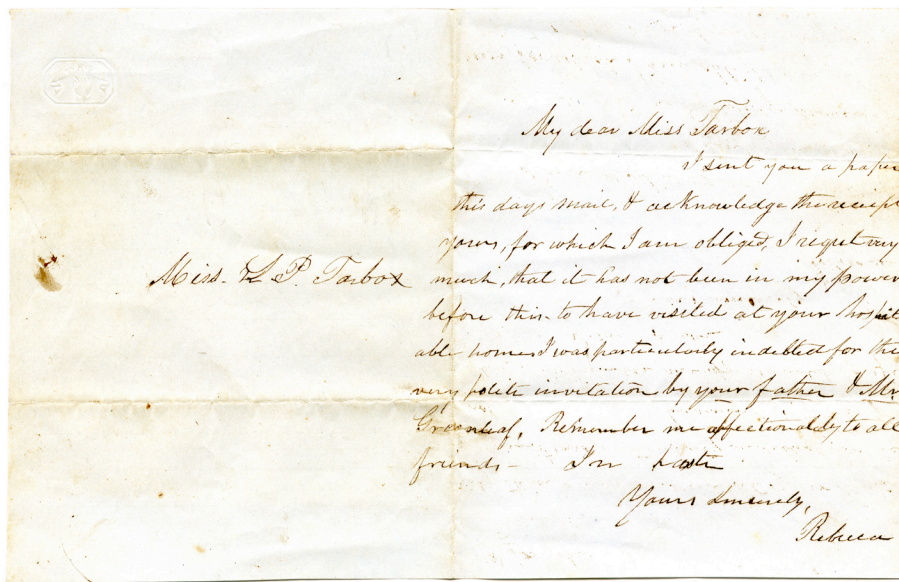 Miss. L P. Tarbox
My dear Miss Tarbox
I sent you a paper
this days mail, & acknowledge the receipt
yours, for which I am obliged, I regret very
much, that it has not been in my power
before this to have visited at your hospit
able home I was particularly indebted for the
very polite invitation by your father & Mr.
Greenleaf, Remember me affectionately to all
friends - In haste
Yours Sincerely,
Rebecca